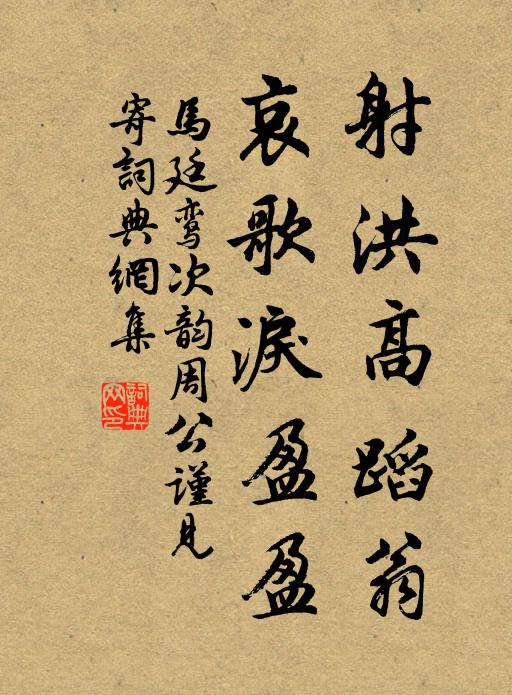 射洪高蹈翁
哀歌淚盈盈
馬廷鸾次韵周公謹見
寄詞典網集
詞典网印